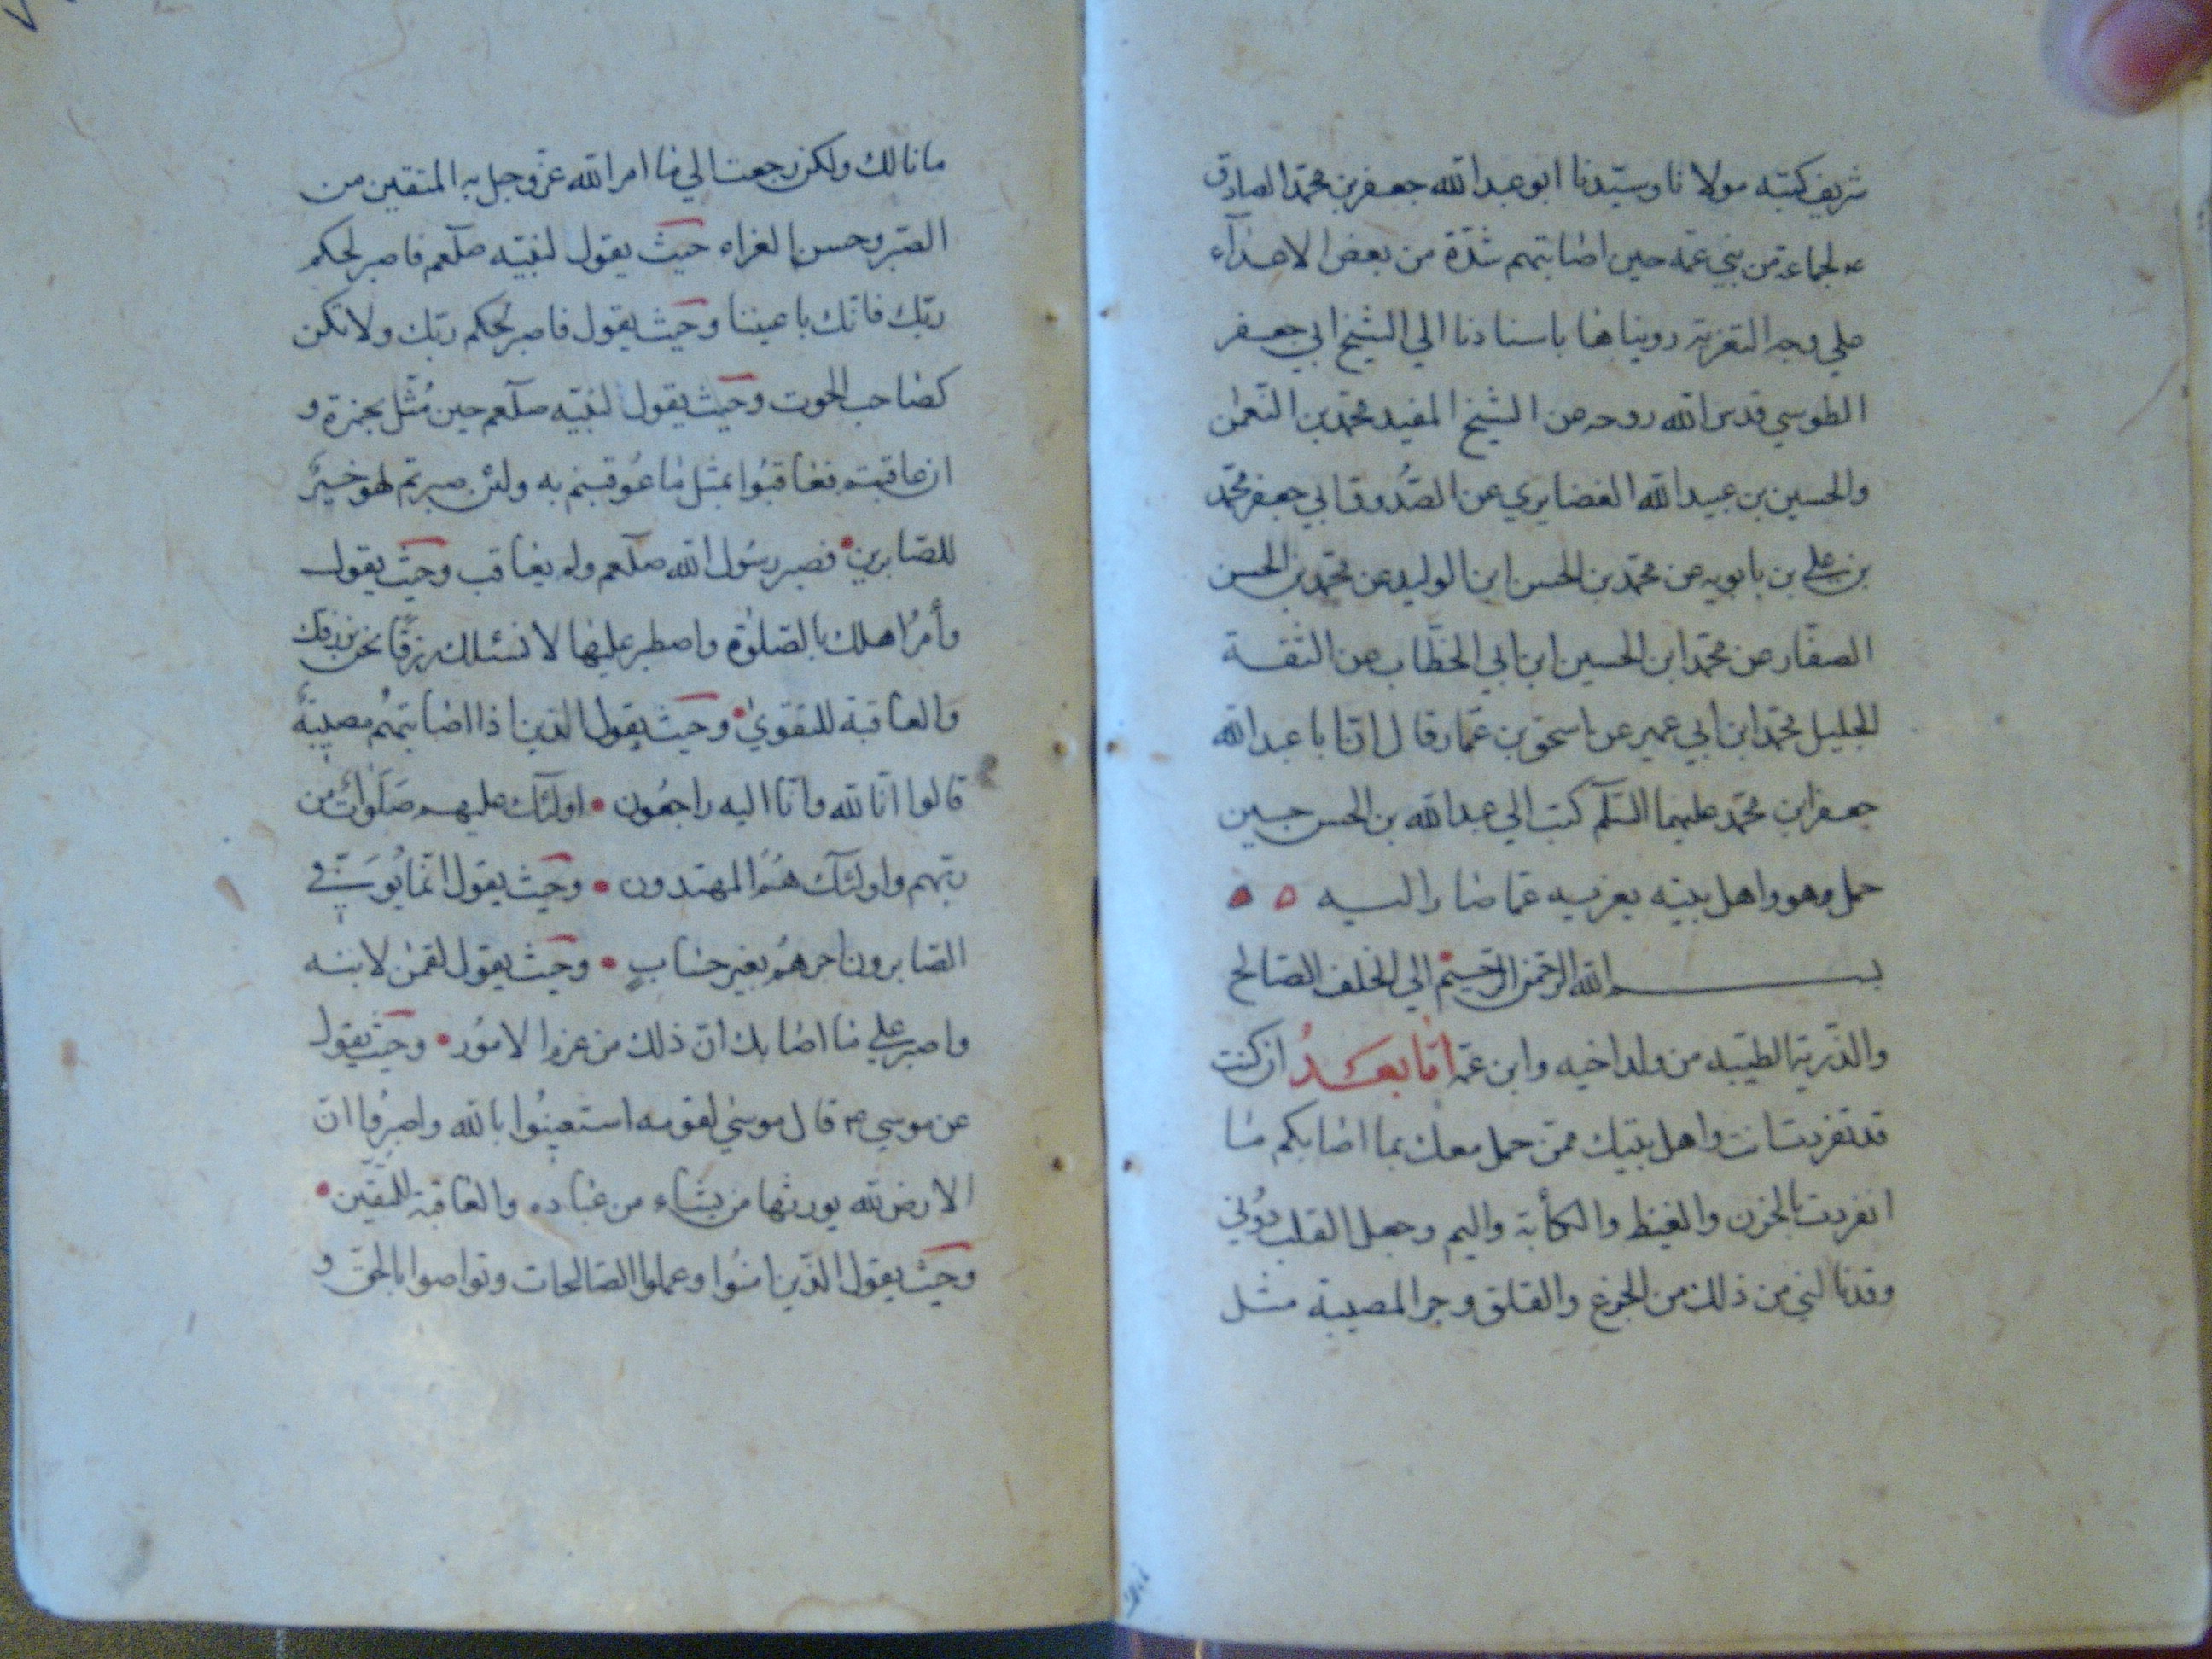 شريف كتبه مولانا وسيّدنا ابو عبد الله جعفر بن محمّد الصادق
ع لجماعة من بني عمّه حين اصابتهم شدّة من بعض الاعدآء
علي وجه التعزية رويناها باسنادنا الي الشيخ ابي جعفر
الطوسي قدس الله روحه عن الشيخ المفيد محمّد بن النّعمٰن
والحسين بن عبيد الله الغضايري عن الصّدُوق ابي جعفر محمّد
بن علي بن بابويه عن محمّد بن الحسن ابن الوليد عن محمّد بن الحسن
الصفّار عن محمّد ابن الحسين ابن ابي الخطّاب عن الثقة
الجليل محمّد ابن ابي عمير عن اسحق بن عمّار قال انّ ابا عبد الله
جعفر ابن محمّد عليهما السّلم كتب الي عبد الله بن الحسن حين
حمل وهو واهل بيته يعزيه عمّا صار اليه ۵ ۵
بسم الله الرّحمن الرّحيم الي الخلف الصّالح
والذّرية الطيّبه من ولد اخيه وابن عمّه امّا بعد ان كنت
قد تفردت انت واهل بيتك ممّن حمل معك بما اصابكم ما
انفردت بالحزن والغيظ والكأبة واليم وجعل القلب دُوني
وقد نالني من ذلك من الجزع والقلق وحر المصيبة مثل
ما نالك ولكن رجعت الي ما امر الله عزّ وجل به المتقين من
الصّبر وحسن العزاء حيث يقول لنبيّه صلّعم فاصبر لحكم
ربّك فانّك باعيننا وحيث يقول فاصبر لحكم ربّك ولا تكن
كصاحب الحوت وحيث يقول لنبيّه صلّعم حين مُثّل بحمزة و
ان عاقبتم فعاقبُوا بمثل ما عُوقبتم به ولئن صبرتم لهو خيرٌ
للصّابرين فصبر رسُول الله صلّعم ولم يعاقب وحيث يقول
وأمُر اهلك بالصّلوٰة واصطبر عليها لا نسئلك رزقًا نحن نرزقك
والعاقبة للتقويٰ وحيث يقول الذين اذا اصابتهُم مصيبةٌ
قالوا انّا لله وانّا اليه راجعُون اولئك عليهم صَلَوَاتٌ من
ربّهم واولئك هُمُ المهتدون وحيث يقول انّما يُوَفّي
الصّابرون اجرهُم بغير حسابٍ وحيث يقول لقمٰن لابنه
واصبر علي ما اصابك انّ ذلك من عزم الامُور وحيث يقول
عن موسي ع قال موسيٰ لقومه استعينُوا بالله واصبرُوا انّ
الارض لله يورثها من يشاء من عباده والعاقبة للمتّقين
وحيث يقول الذّين امنُوا وعملوا الصّالحات وتواصوا بالحقّ و